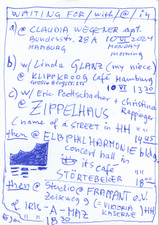 WAITING FOR/with/@/in
a) @ CLAUDIA WEGENER apt
Bundesstr. 28 A 10 VI 2024
HAMBURG MONDAY
morning
b) w/ Linda GLANZ (my niece)
@ KLIPPKROOG Café Hamburg
10 VI 1330
c) w/ Eric Pootschacher + Christina
@ ZIPPELHAUS
(name of a STREET in HH
1445
then @ ELBPHILHARMONIE bldg
concert hall in
its café
STÖRTEBEKER
18
then @ Studio FRAPPANT e.V.
Zeiseweg 9 (= VIKTORIA KASERNE) HH
of IRIS-A-MAZ
1830